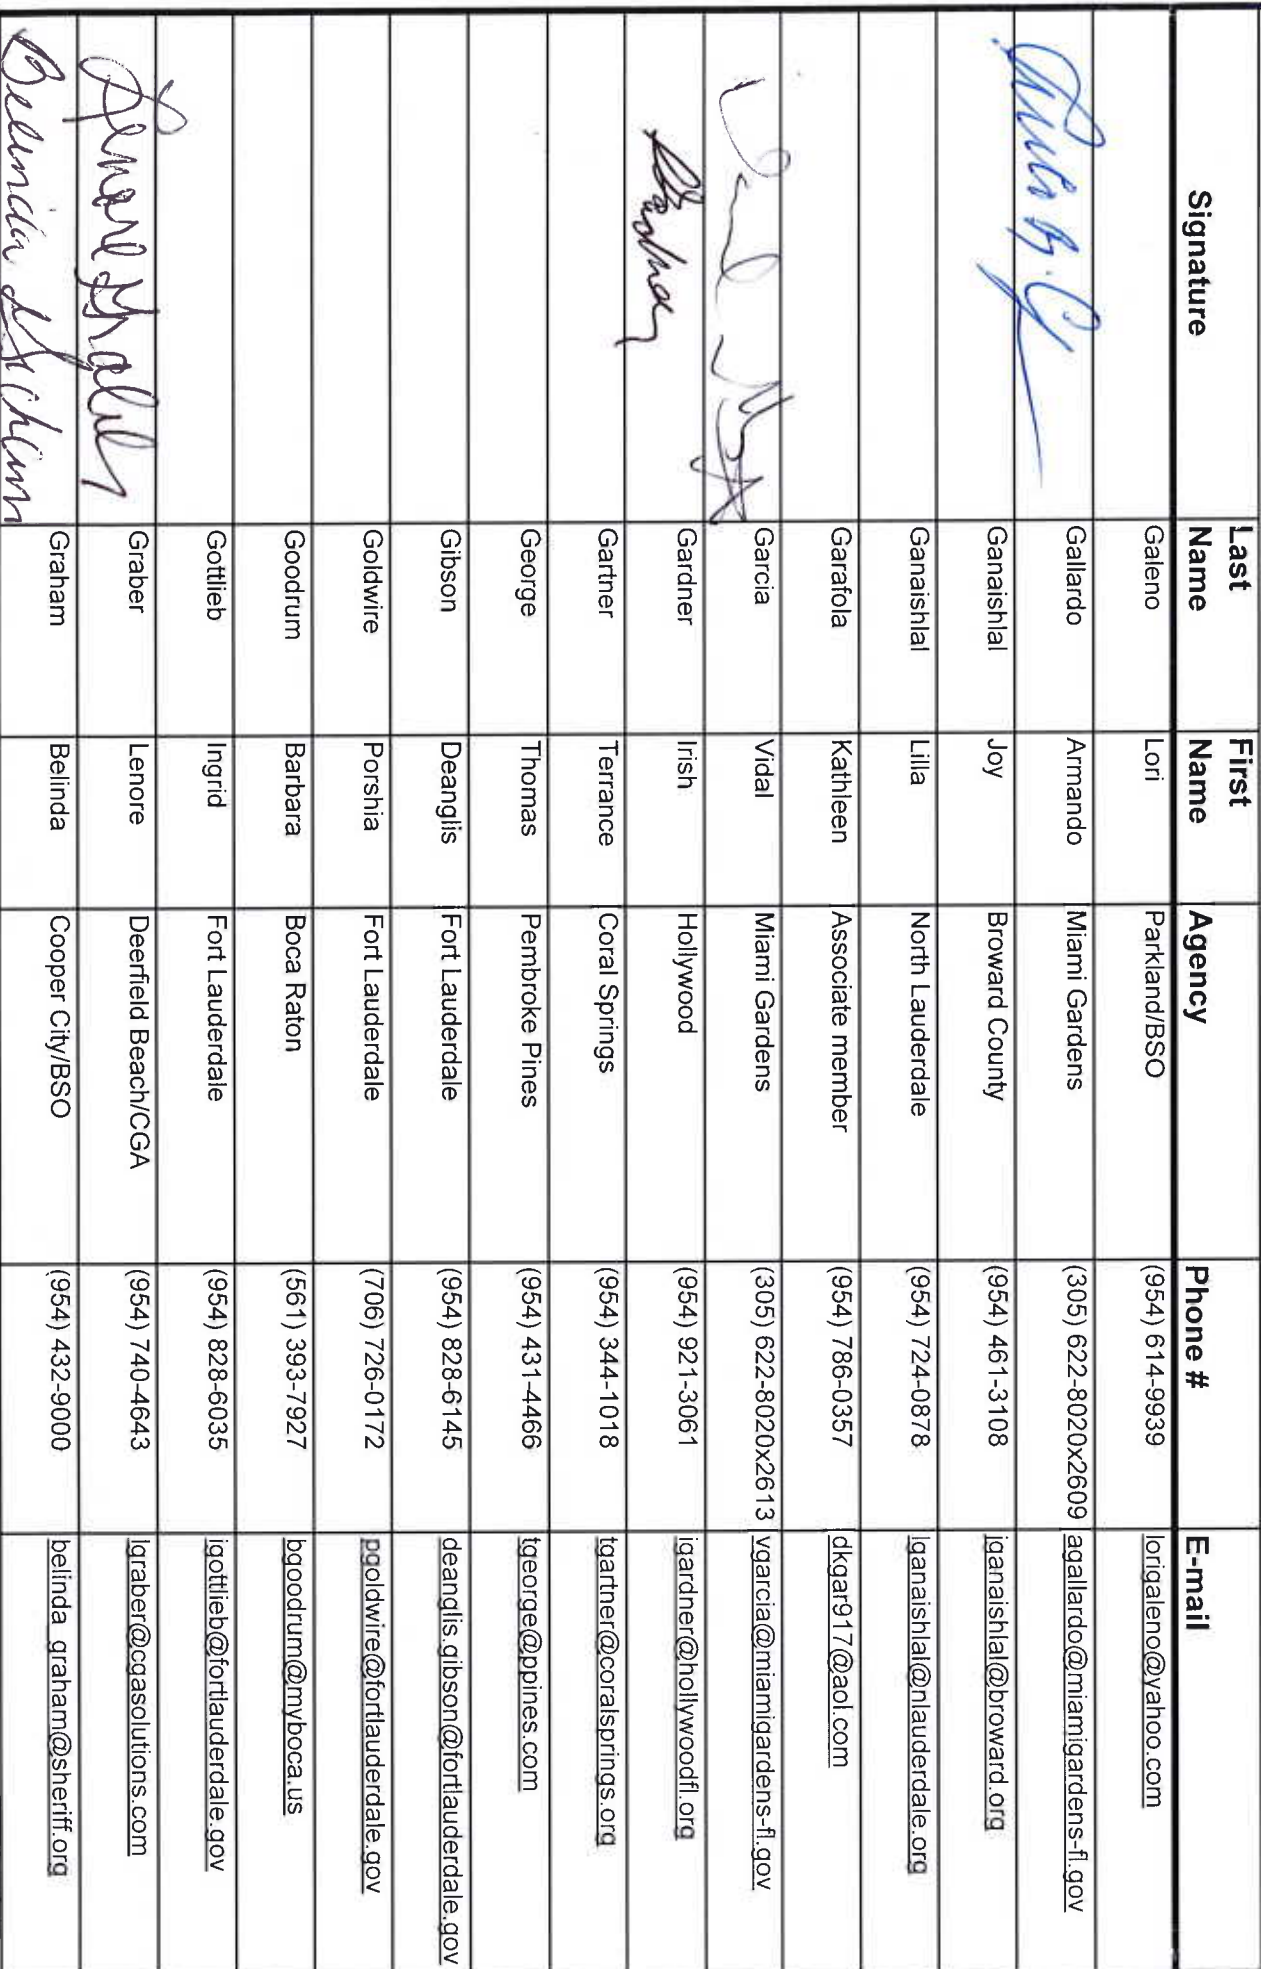 Signature Last Name First Name Agency Phone # E-mail
Galeno Lori Parkland/BSO (954) 614-9939 lorigaleno@yahoo.com
Gallardo Armando Miami Gardens (305) 622-8020x2609 agallardo@miamigardens-fl.gov
Ganaishlal Joy Broward County (954) 461-3108 jganaishlal@broward.org
Ganaishlal Lilla North Lauderdale (954) 724-0878 lganaishlal@nlauderdale.org
Garafola Kathleen Associate member (954) 786-0357 dkgar917@aol.com
Garcia Vidal Miami Gardens (305) 622-8020x2613 vgarcia@miamigardens-fl.gov
Gardner Irish Hollywood (954) 921-3061 igardner@hollywoodfl.org
Gartner Terrance Coral Springs (954) 344-1018 tgartner@coralsprings.org
George Thomas Pembroke Pines (954) 431-4466 tgeorge@ppines.com
Gibson Deanglis Fort Lauderdale (954) 828-6145 deanglis.gibson@fortlauderdale.gov
Goldwire Porshia Fort Lauderdale (706) 726-0172 pgoldwire@fortlauderdale.gov
Goodrum Barbara Boca Raton (561) 393-7927 bgoodrum@myboca.us
Gottlieb Ingrid Fort Lauderdale (954) 828-6035 igottlieb@fortlauderdale.gov
Lenore Graber Graber Lenore Deerfield Beach/CGA (954) 740-4643 lgraber@cgasolutions.com
Belinda Graham Belinda Cooper City/BSO (954) 432-9000 belinda_graham@sheriff.org